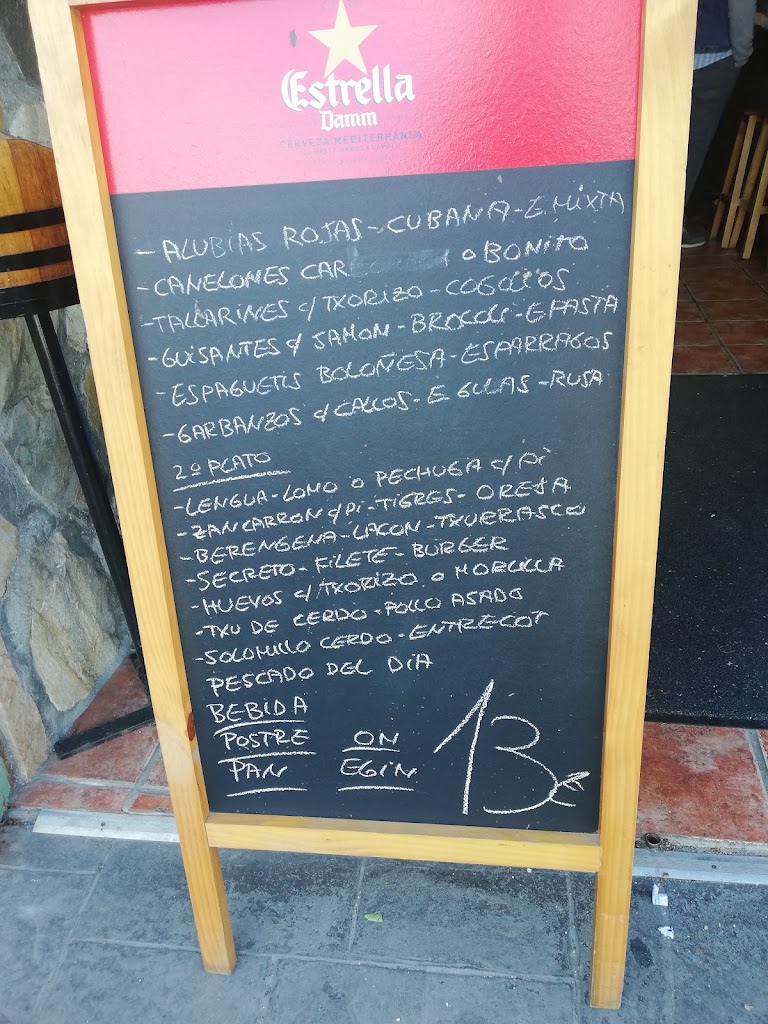 Estrella
Damm
CERVEZA MEDITERRÁNEA
- ALUBIAS ROJAS - CUBANA - E. MIXTA
- CANELONES CAR o BONITO
- TALLARINES c/ TXORIZO - COGOLLOS
- GUISANTES c/ JAMON - BROCOLI - E PASTA
- ESPAGUETIS BOLOÑESA - ESPARRAGOS
- GARBANZOS c/ CALLOS - E. GULAS - RUSA
2º PLATO
- LENGUA - LOMO o PECHUGA c/ Pi
- ZANCARRON c/ Pi - TIGRES - OREJA
- BERENGENA - LACON - TXURRASCO
- SECRETO - FILETE - BURGER
- HUEVOS c/ TXORIZO o MORCILLA
- TXU DE CERDO - POLLO ASADO
- SOLOMILLO CERDO - ENTRECOT
PESCADO DEL DIA
BEBIDA
POSTRE ON
PAN EGIN 13€